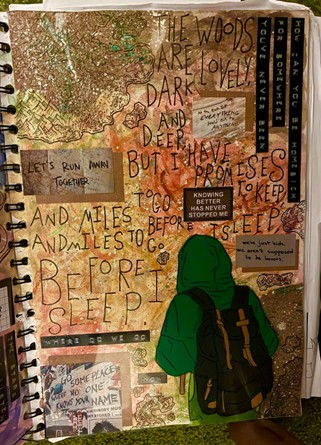 THE WOODS
ARE LOVELY,
DARK
AND
DEEP,
BUT I HAVE
PROMISES
TO KEEP,
AND MILES
TO GO
BEFORE
I SLEEP
AND MILES TO GO
BEFORE I
SLEEP
HOW CAN YOU BE HOMESICK
FOR SOMEWHERE
YOU'VE NEVER BEEN
EVERYTHING
LET'S RUN AWAY
TOGETHER
KNOWING
BETTER
HAS NEVER
STOPPED ME
we're just kids
we aren't supposed
to be heroes
WHERE DO WE GO
GO SOMEPLACE
NO ONE
KNOWS YOUR NAME